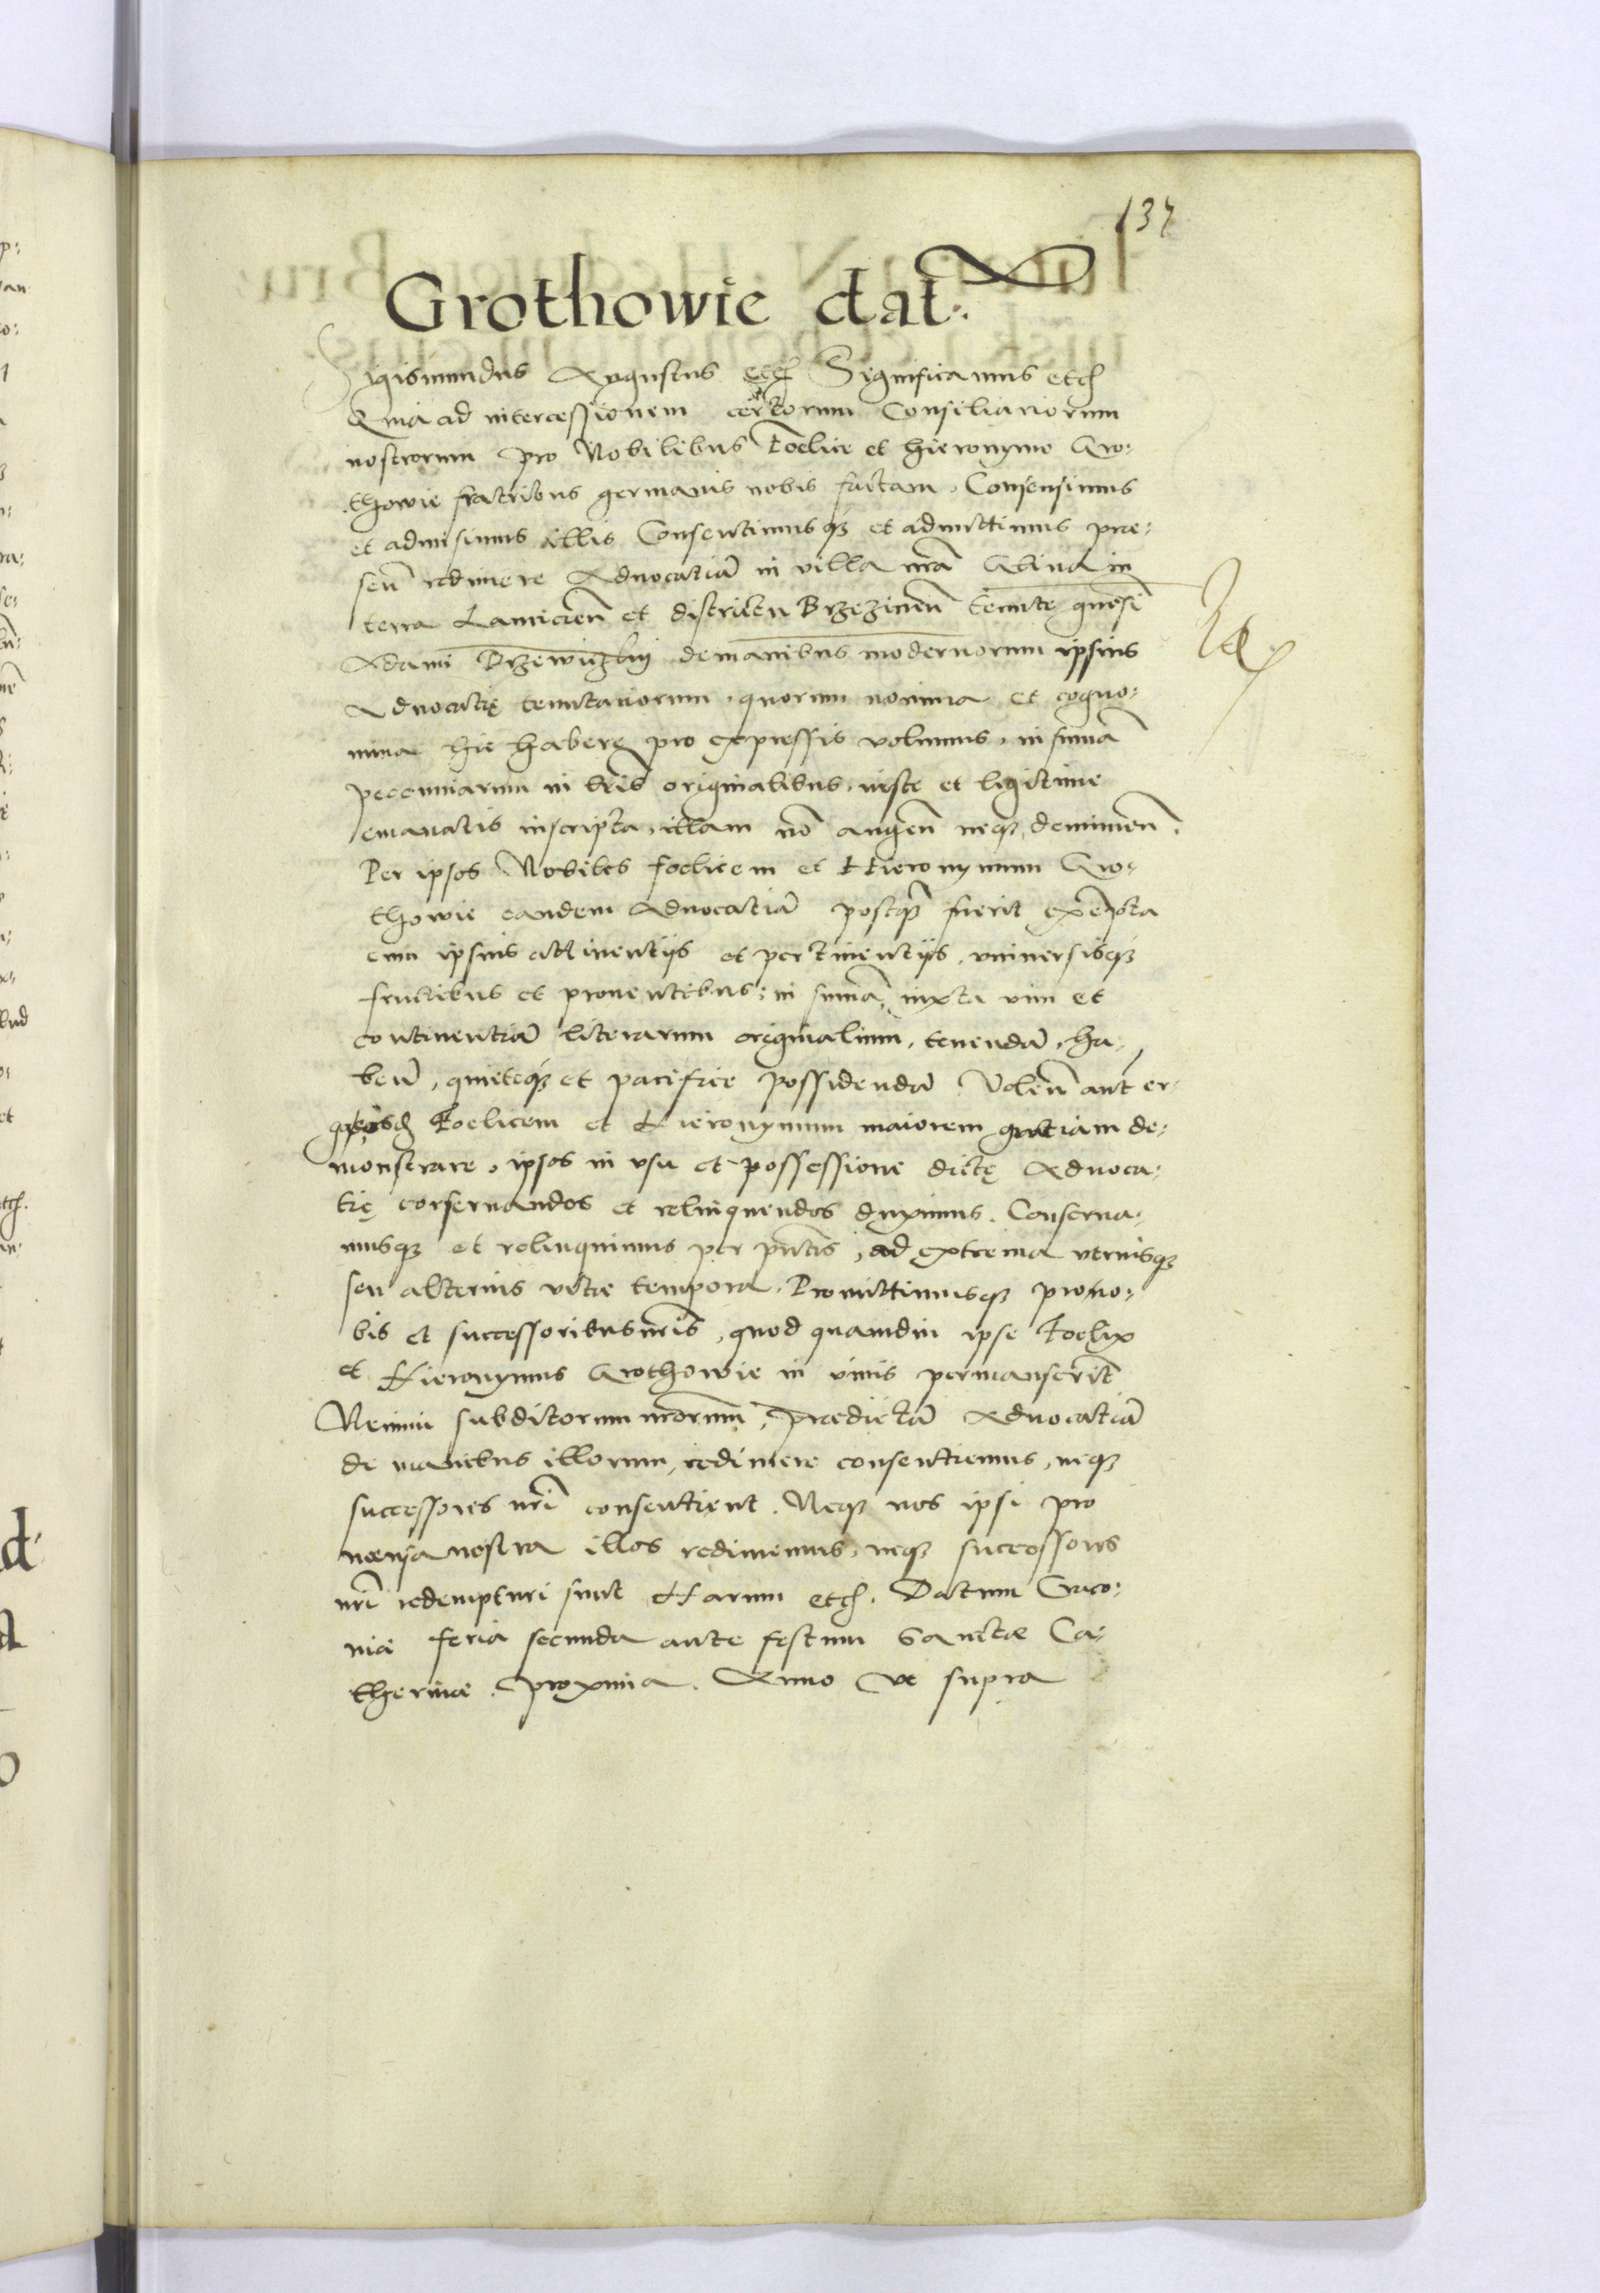 137
Grothowie dat:
Sigismundus Augustus etc̃ Significamus etc̃
Quia ad intercessionem certorum Consiliariorum
nostrorum pro Nobilibus Foelice et Hieronymo Gro:
thowie fratribus germanis nobis factam. Consensimus
et admisimus illis Consentimusqʒ et admittimus prae:
sen̄ redimere Aduocatiā in villa nrā Glina in
terra Lancicien̄ et districtu Brzezinen̄ tenutę
Adami demanibus modernorum ipsius
Aduocatię tenutariorum, quorum nomina et cogno:
mina hic habere pro expressis volumus, in sum̄a
pecuniarum in lr̄is originalibus, iuste et legitime
emanatis inscripta, illam nō augen̄ neqʒ deminuen̄.
Per ipsos Nobiles foelicem et Hieronymum Gro:
thowie eandem Aduocatiā postqʒ̄ fuerit exēpta
cum ipsius attinentijs et pertinentijs, vniuersisqʒ
fructibus et prouentibus; in sum̄a, iuxta vim et
continentiā literarum originalium, tenendā, ha:
ben̄, quieteqʒ et pacifice possidendā Volen̄ aut̄ er:
ga eosdē Foelicem et Hieronymum maiorem gratiam de:
monstrare, ipsos in vsu et possessione dictę Aduoca:
tię conseruandos et relinquendos duximus. Conserua:
musqʒ et relinquimus per pn̄tes, ad extrema vtriusqʒ
seu alterius vitae tempora. Promittimusqʒ pro no:
bis et successoribus nrīs, quod quamdiu ipse Foelix
et Hieronymus Grothowie in viuis permanserīt
Nemini subditorum nrōrum, praedictā Aduocatiā
de manibus illorum, redimere consentiemus, neqʒ
successores nrī consentient. Neqʒ nos ipsi pro
mensa nostra illos redimemus, neqʒ successores
nrī redempturi sunt Harum etc̃. Datum Craco:
uiae feria secunda ante festum Sanctae Ca:
therinae. proxima. Anno vt supra